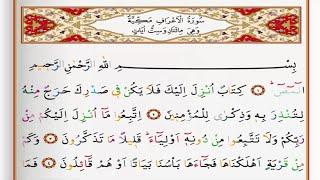 سُورَةُ الْاَعْرَافِ مَكِّيَّةٌ
وَهِيَ مِائَتَانِ وَسِتُّ اٰيَاتٍ
بِسْمِ اللّٰهِ الرَّحْمٰنِ الرَّحِيمِ
الٓمٓصٓ ﴿١﴾ كِتَابٌ اُنْزِلَ اِلَيْكَ فَلَا يَكُنْ فِي صَدْرِكَ حَرَجٌ مِنْهُ
لِتُنْذِرَ بِهِ وَذِكْرٰى لِلْمُؤْمِنِينَ ﴿٢﴾ اِتَّبِعُوا مَٓا اُنْزِلَ اِلَيْكُمْ مِنْ
رَبِّكُمْ وَلَا تَتَّبِعُوا مِنْ دُونِهِٓ اَوْلِيَٓاءَ قَلِيلًا مَا تَذَكَّرُونَ ﴿٣﴾ وَكَمْ
مِنْ قَرْيَةٍ اَهْلَكْنَاهَا فَجَٓاءَهَا بَأْسُنَا بَيَاتًا اَوْ هُمْ قَٓائِلُونَ ﴿٤﴾ فَمَا